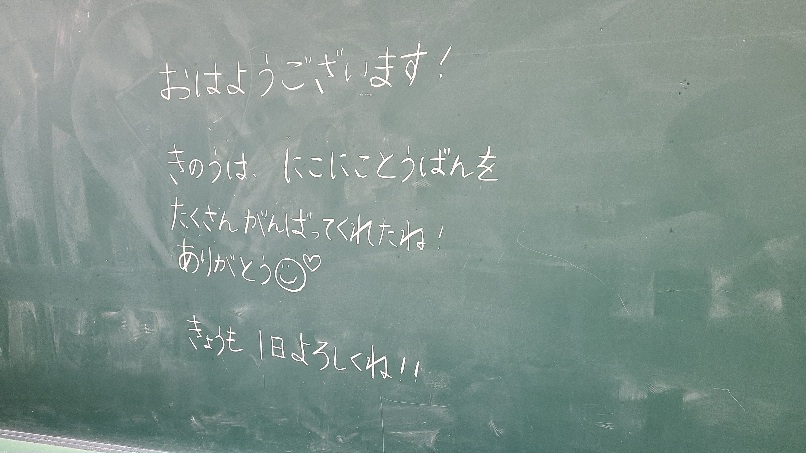 おはようございます!
きのうは、にこにことうばんを
たくさんがんばってくれたね!
ありがとう☺♡
きょうも 1日よろしくね!!